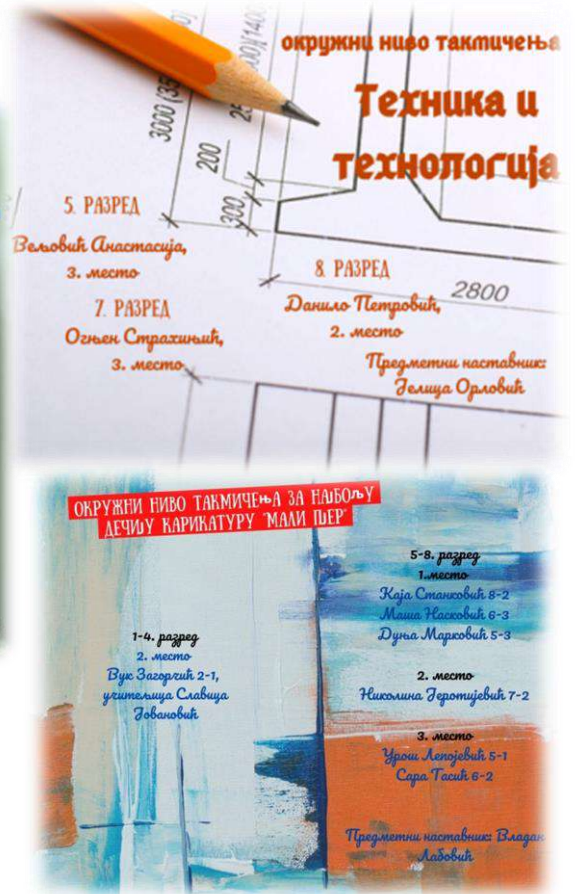 окружни ниво такмичења
Техника и
технологија
3000 (35
200
300
2800
5. РАЗРЕД
Вељовић Анастасија,
3. место
7. РАЗРЕД
Огњен Страхињић,
3. место
8. РАЗРЕД
Данило Петровић,
2. место
Предметни наставник:
Јелица Орловић
ОКРУЖНИ НИВО ТАКМИЧЕЊА ЗА НАЈБОЉУ
ДЕЧИЈУ КАРИКАТУРУ "МАЛИ ПЈЕР"
1-4. разред
2. место
Вук Загорчић 2-1,
учитељица Славица
Јовановић
5-8. разред
1.место
Каја Станковић 8-2
Маша Насковић 6-3
Дуња Марковић 5-3
2. место
Николина Јеротијевић 7-2
3. место
Урош Лепојевић 5-1
Сара Тасић 6-2
Предметни наставник: Владан
Лабовић